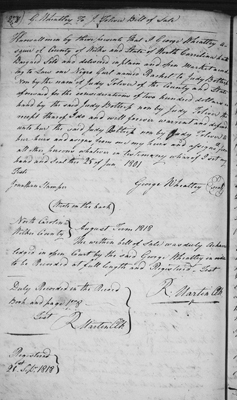 G. Wheatley To J. Toliver Bill of Sale
Know all men by these presents that I George Wheatley
of County of Wilkes and State of North Carolina have
Bargained Sold and delivered in plain and open Market
by to Law one Negro Girl named Rachel to Judy
now by the name of Judy Toliver of the County and State
aforesaid for the consideration of two hundred dollars in
hand by the said Judy now by Judy Toliver the
receipt thereof I do and will forever warrant and defend
unto her the said Judy now by Judy Toliver
her heirs and assigns from me my heirs and assigns &
all other persons whatever In Testimony whereof I set my
hand and Seal this 25 of Jan. 1801
Test
Jonathan Stamper George Wheatley Seal
(Note on the back)
North Carolina
Wilkes County } August Term 1818
The within bill of Sale was duly acknow
ledged in open Court by the said George Wheatley
to be Recorded at full length and Registered. Test
R. Martin Clk
Duly Recorded in the Record
Book and page
Test
R. Martin Clk
Registered
21st Sept. 1818